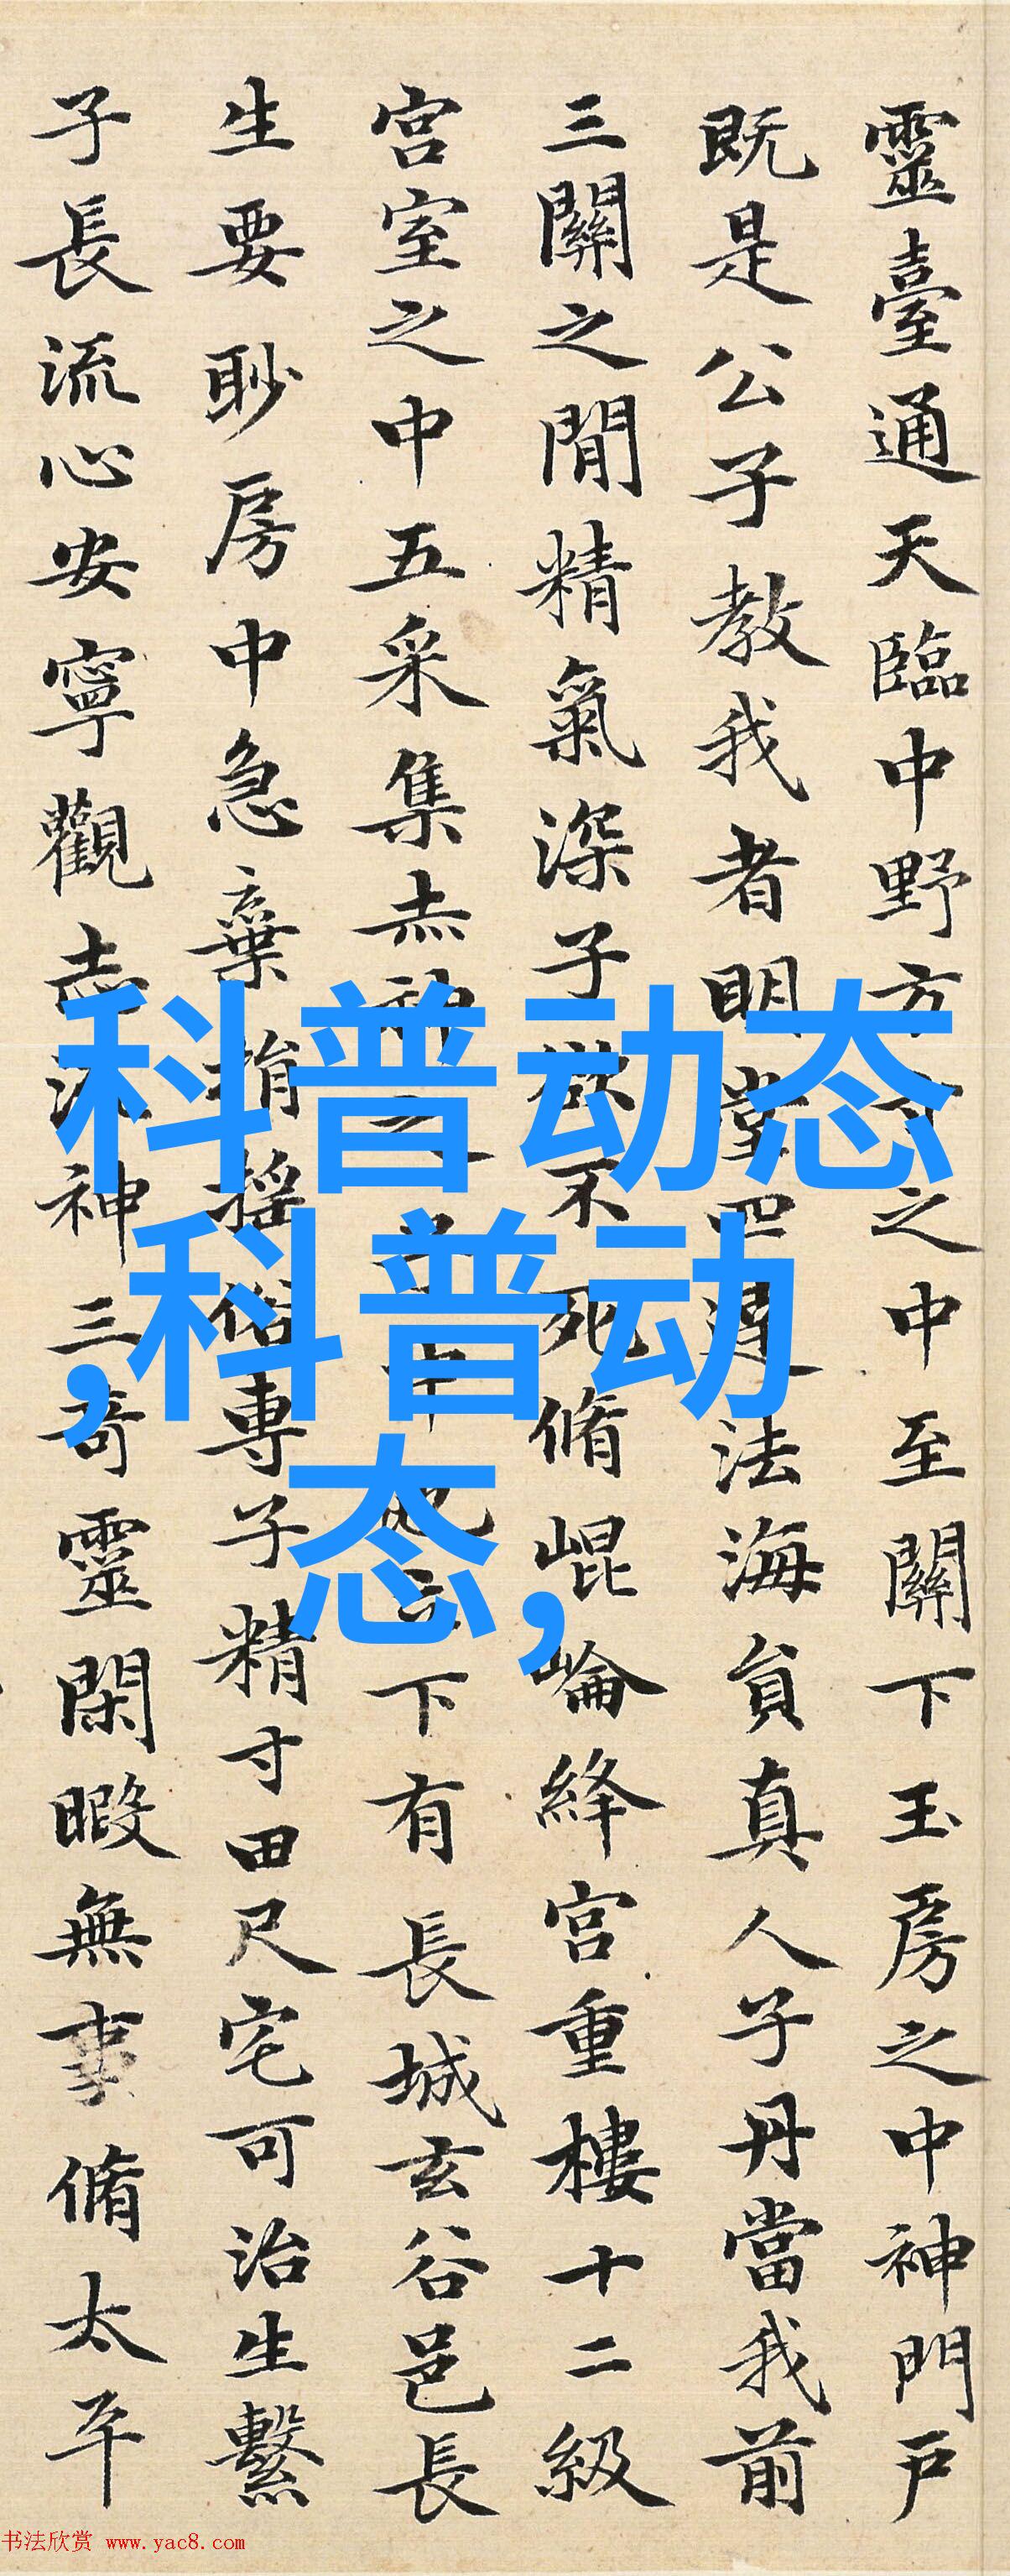 靈臺通天臨中野方寸之中至關下玉房之中神門戶
既是公子教我者明堂四達法海員真人子丹當我前
三關之閒精氣深子欲不死脩崐崘絳宮重樓十二級
宮室之中五采集赤神之子中池立下有長城玄谷邑長
生要眇房中急棄捐搖俗專子精寸田尺宅可治生繫
子長流心安寧觀志流神三奇靈閑暇無事脩太平
科普动态
,科普动
态,
书法欣赏 www.yac8.com